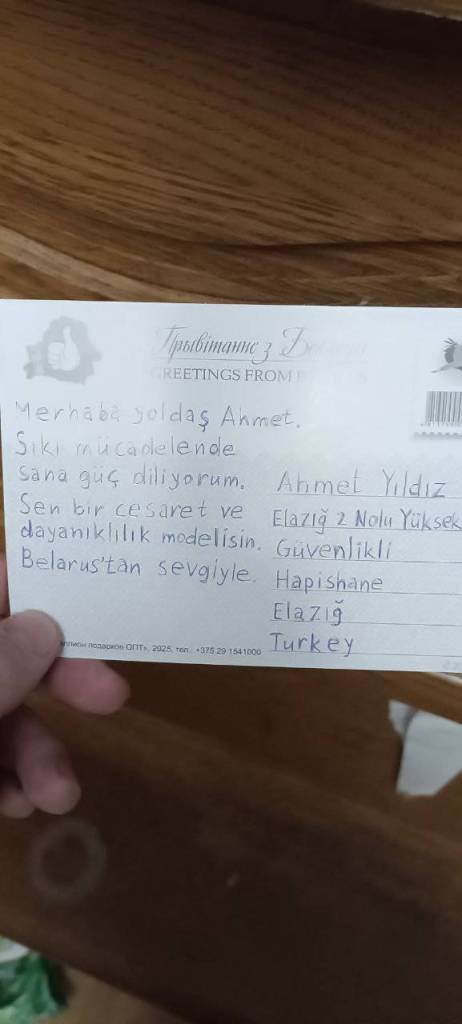 Прывітанне з
GREETINGS FROM
Merhaba yoldaş Ahmet.
Sıkı mücadelende
sana güç diliyorum.
Sen bir cesaret ve
dayanıklılık modelisin.
Belarus'tan sevgiyle.
Ahmet Yıldız
Elazığ 2 Nolu Yüksek
Güvenlikli
Hapishane
Elazığ
Turkey
подарков ОПТ», 2025, тел.: +375 29 1541000